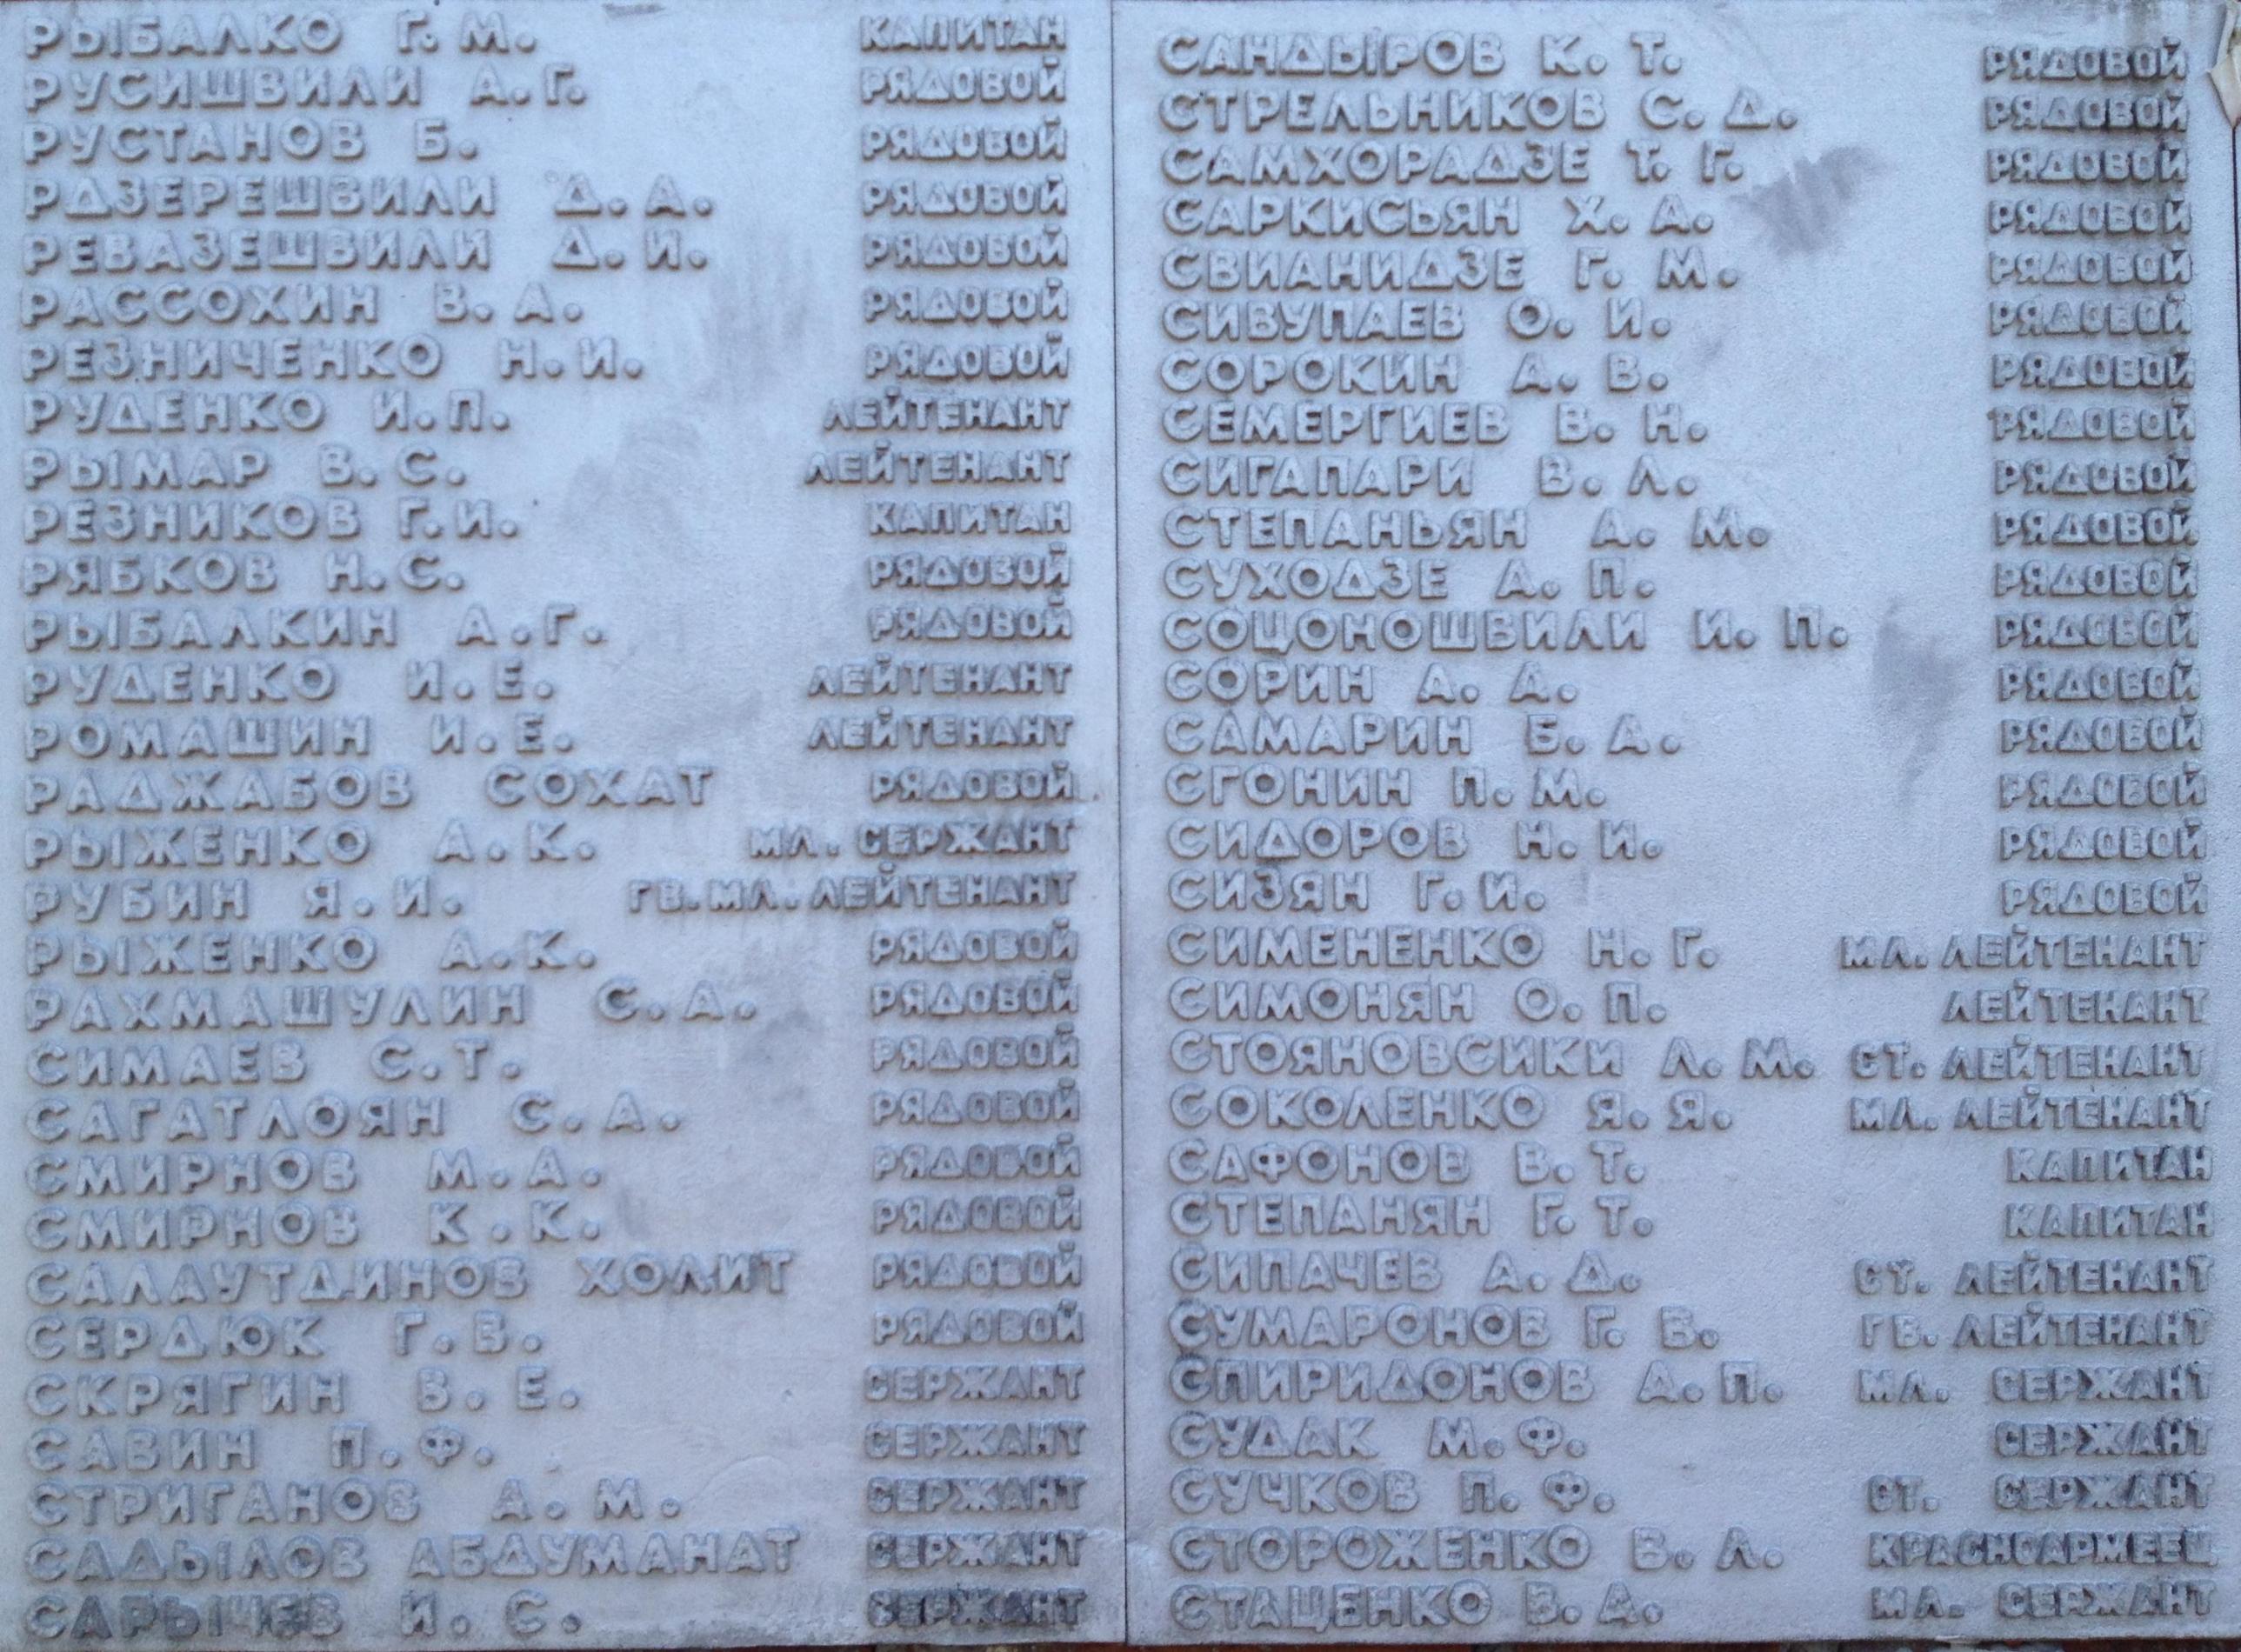 РЫБАЛКО Г.М. КАПИТАН
РУСИШВИЛИ А.Г. РЯДОВОЙ
РУСТАНОВ Б. РЯДОВОЙ
РДЗЕРЕШВИЛИ Д.А. РЯДОВОЙ
РЕВАЗЕШВИЛИ Д.И. РЯДОВОЙ
РАССОХИН В.А. РЯДОВОЙ
РЕЗНИЧЕНКО Н.И. РЯДОВОЙ
РУДЕНКО И.П. ЛЕЙТЕНАНТ
РЫМАР В.С. ЛЕЙТЕНАНТ
РЕЗНИКОВ Г.И. КАПИТАН
РЯБКОВ Н.С. РЯДОВОЙ
РЫБАЛКИН А.Г. РЯДОВОЙ
РУДЕНКО И.Е. ЛЕЙТЕНАНТ
РОМАШИН И.Е. ЛЕЙТЕНАНТ
РАДЖАБОВ СОХАТ РЯДОВОЙ
РЫЖЕНКО А.К. МЛ. СЕРЖАНТ
РУБИН Я.И. ГВ.МЛ.ЛЕЙТЕНАНТ
РЫЖЕНКО А.К. РЯДОВОЙ
РАХМАШУЛИН С.А. РЯДОВОЙ
СИМАЕВ С.Т. РЯДОВОЙ
САГАТЛОЯН С.А. РЯДОВОЙ
СМИРНОВ М.А. РЯДОВОЙ
СМИРНОВ К.К. РЯДОВОЙ
САЛАУТДИНОВ ХОЛИТ РЯДОВОЙ
СЕРДЮК Г.В. РЯДОВОЙ
СКРЯГИН В.Е. СЕРЖАНТ
САВИН П.Ф. СЕРЖАНТ
СТРИГАНОВ А.М. СЕРЖАНТ
САДЫЛОВ АБДУМАНАТ СЕРЖАНТ
САРЫЧЕВ И.С. СЕРЖАНТ
САНДЫРОВ К. Т. РЯДОВОЙ
СТРЕЛЬНИКОВ С. Д. РЯДОВОЙ
САМХОРАДЗЕ Т. Г. РЯДОВОЙ
САРКИСЬЯН Х. А. РЯДОВОЙ
СВИАНИДЗЕ Г. М. РЯДОВОЙ
СИВУПАЕВ О. И. РЯДОВОЙ
СОРОКИН А. В. РЯДОВОЙ
СЕМЕРГИЕВ В. Н. РЯДОВОЙ
СИГАПАРИ В. Л. РЯДОВОЙ
СТЕПАНЬЯН А. М. РЯДОВОЙ
СУХОДЗЕ А. П. РЯДОВОЙ
СОЦОНОШВИЛИ И. П. РЯДОВОЙ
СОРИН А. А. РЯДОВОЙ
САМАРИН Б. А. РЯДОВОЙ
СГОНИН П. М. РЯДОВОЙ
СИДОРОВ Н. И. РЯДОВОЙ
СИЗЯН Г. И. РЯДОВОЙ
СИМЕНЕНКО Н. Г. МЛ. ЛЕЙТЕНАНТ
СИМОНЯН О. П. ЛЕЙТЕНАНТ
СТОЯНОВСИКИ Л. М. СТ. ЛЕЙТЕНАНТ
СОКОЛЕНКО Я. Я. МЛ. ЛЕЙТЕНАНТ
САФОНОВ В. Т. КАПИТАН
СТЕПАНЯН Г. Т. КАПИТАН
СИПАЧЕВ А. Д. СТ. ЛЕЙТЕНАНТ
СУМАРОНОВ Г. В. ГВ. ЛЕЙТЕНАНТ
СПИРИДОНОВ А. П. МЛ. СЕРЖАНТ
СУДАК М. Ф. СЕРЖАНТ
СУЧКОВ П. Ф. СТ. СЕРЖАНТ
СТОРОЖЕНКО В. Л. КРАСНОАРМЕЕЦ
СТАЦЕНКО В. А. МЛ. СЕРЖАНТ